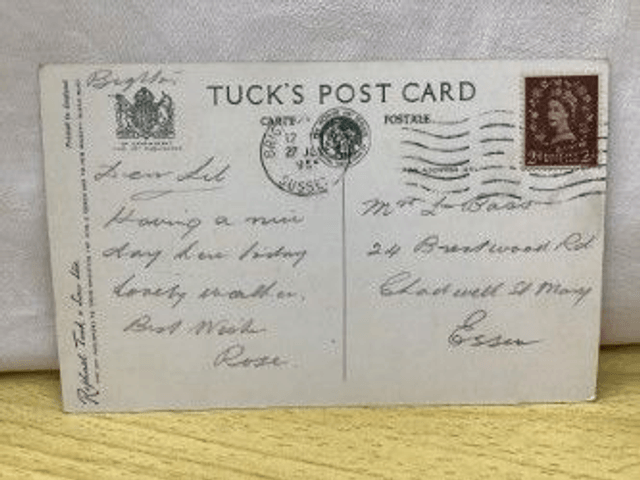 Brighton
TUCK'S POST CARD
CARTE POSTALE
BRIG
12
27 JU
195
SUSSEX
2d 2d
Printed in England
Raphael Tuck & Sons Ltd.
Dear Lil
Having a nice
day here today
Lovely weather.
Best Wish
Rose.
Mrs L Bass
24 Brentwood Rd
Chadwell St Mary
Essex